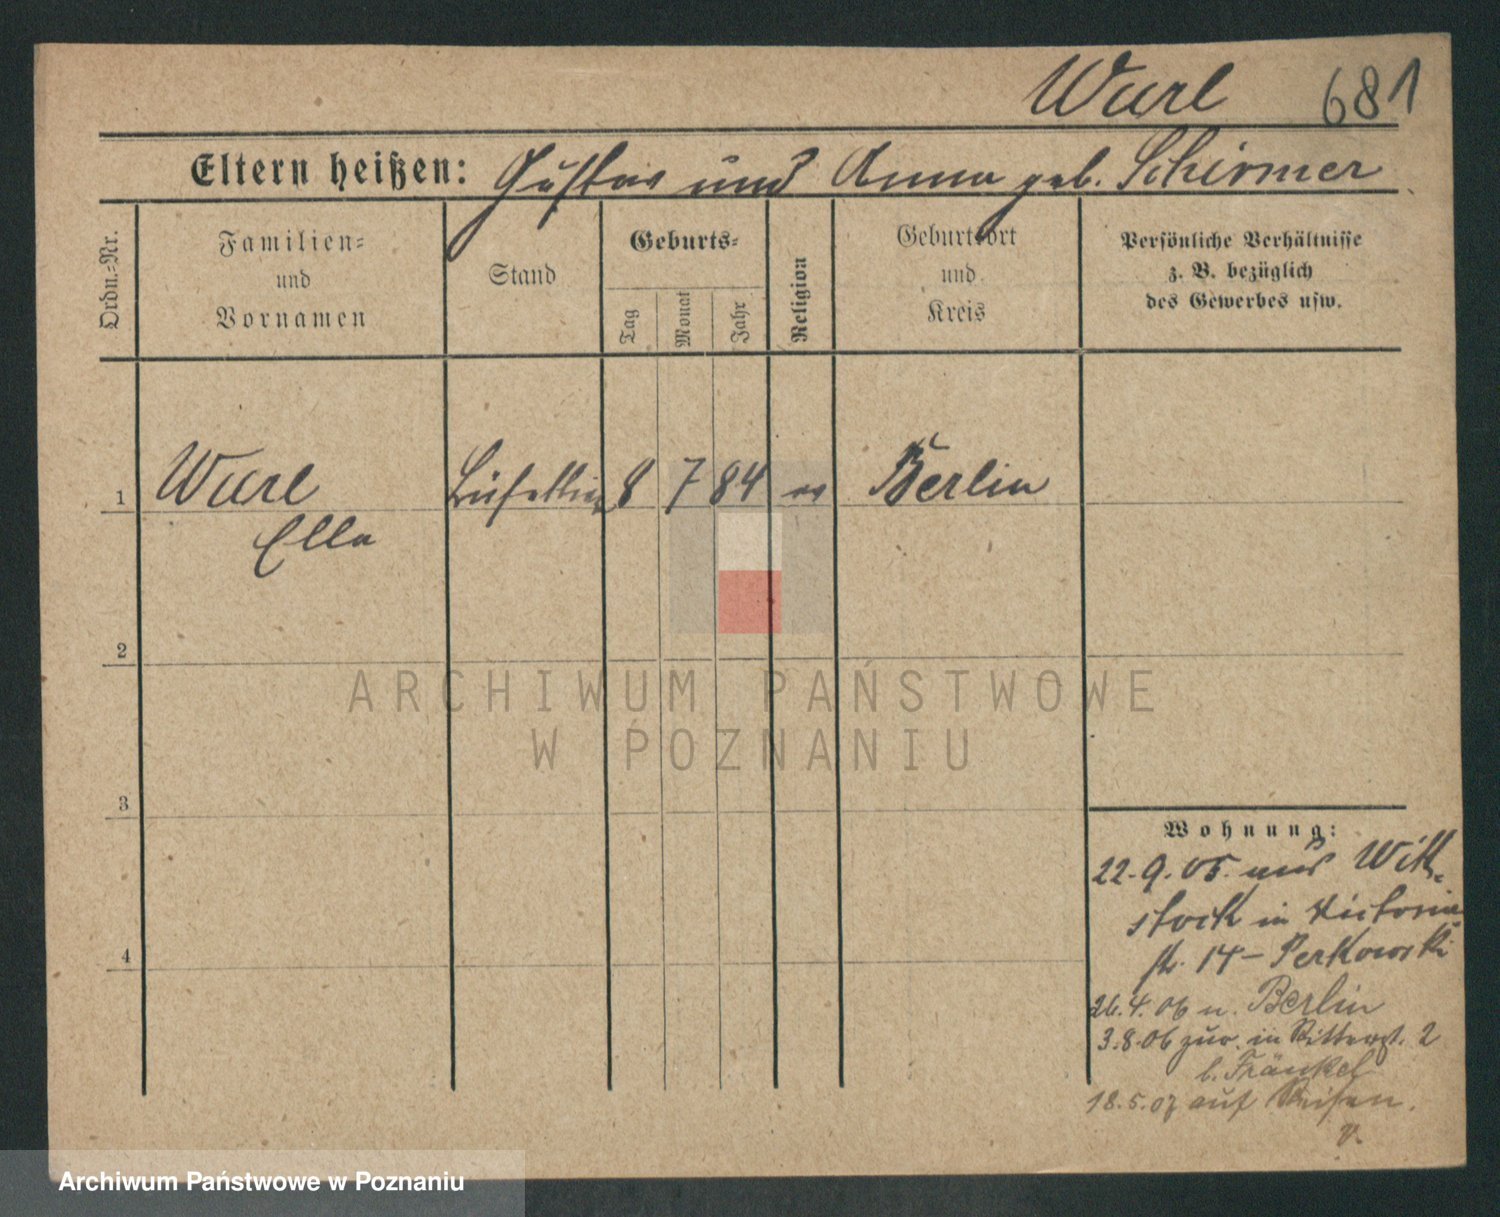 Wurl 681
Eltern heißen: Gustav und Anna geb. Schirmer
Ordn.-Nr.
Familien-
und
Vornamen
Stand
Geburts-
Tag
Monat
Jahr
Religion
Geburtsort
und
Kreis
Persönliche Verhältnisse
z. B. bezüglich
des Gewerbes usw.
1 Wurl Büfettier 8 7 84 ev Berlin
Ella
2
3
4
ARCHIWUM PAŃSTWOWE
W POZNANIU
Wohnung:
22.9.05. aus Witt-
stock in Victoria
str. 14 - Perkowski
26.4.06 n. Berlin
3.8.06 zur. in Ritterst. 2
b. Fränkel
18.5.07 auf Reisen.
Archiwum Państwowe w Poznaniu